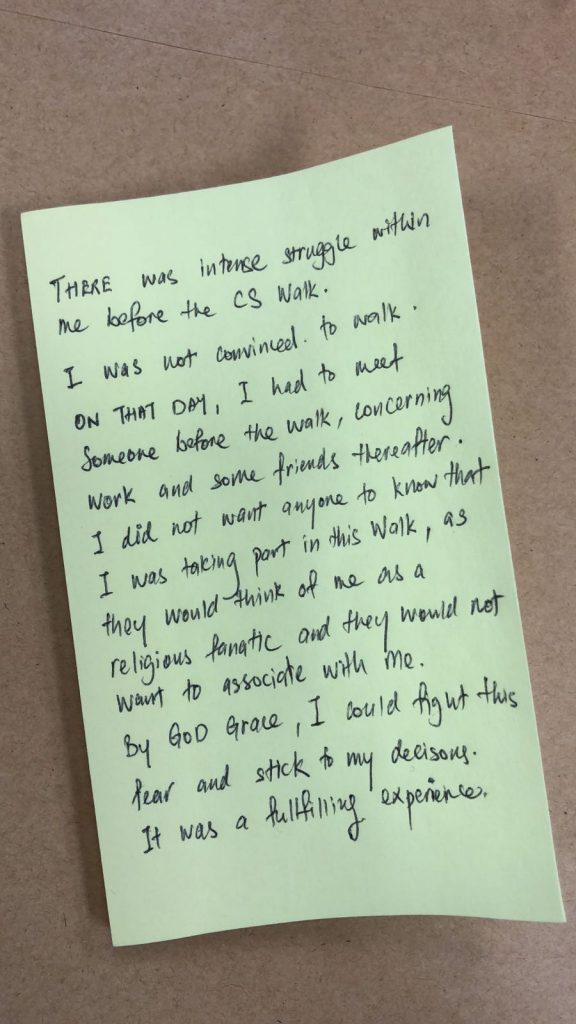 THERE was intense struggle within
me before the CS Walk.
I was not convinced. to walk.
ON THAT DAY, I had to meet
Someone before the walk, concerning
work and some friends thereafter.
I did not want anyone to know that
I was taking part in this Walk, as
they would think of me as a
religious fanatic and they would not
want to associate with me.
By GOD Grace, I could fight this
fear and stick to my decisons.
It was a fullfilling experience.